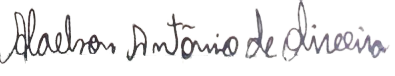 Alaelson Antônio de Oliveira